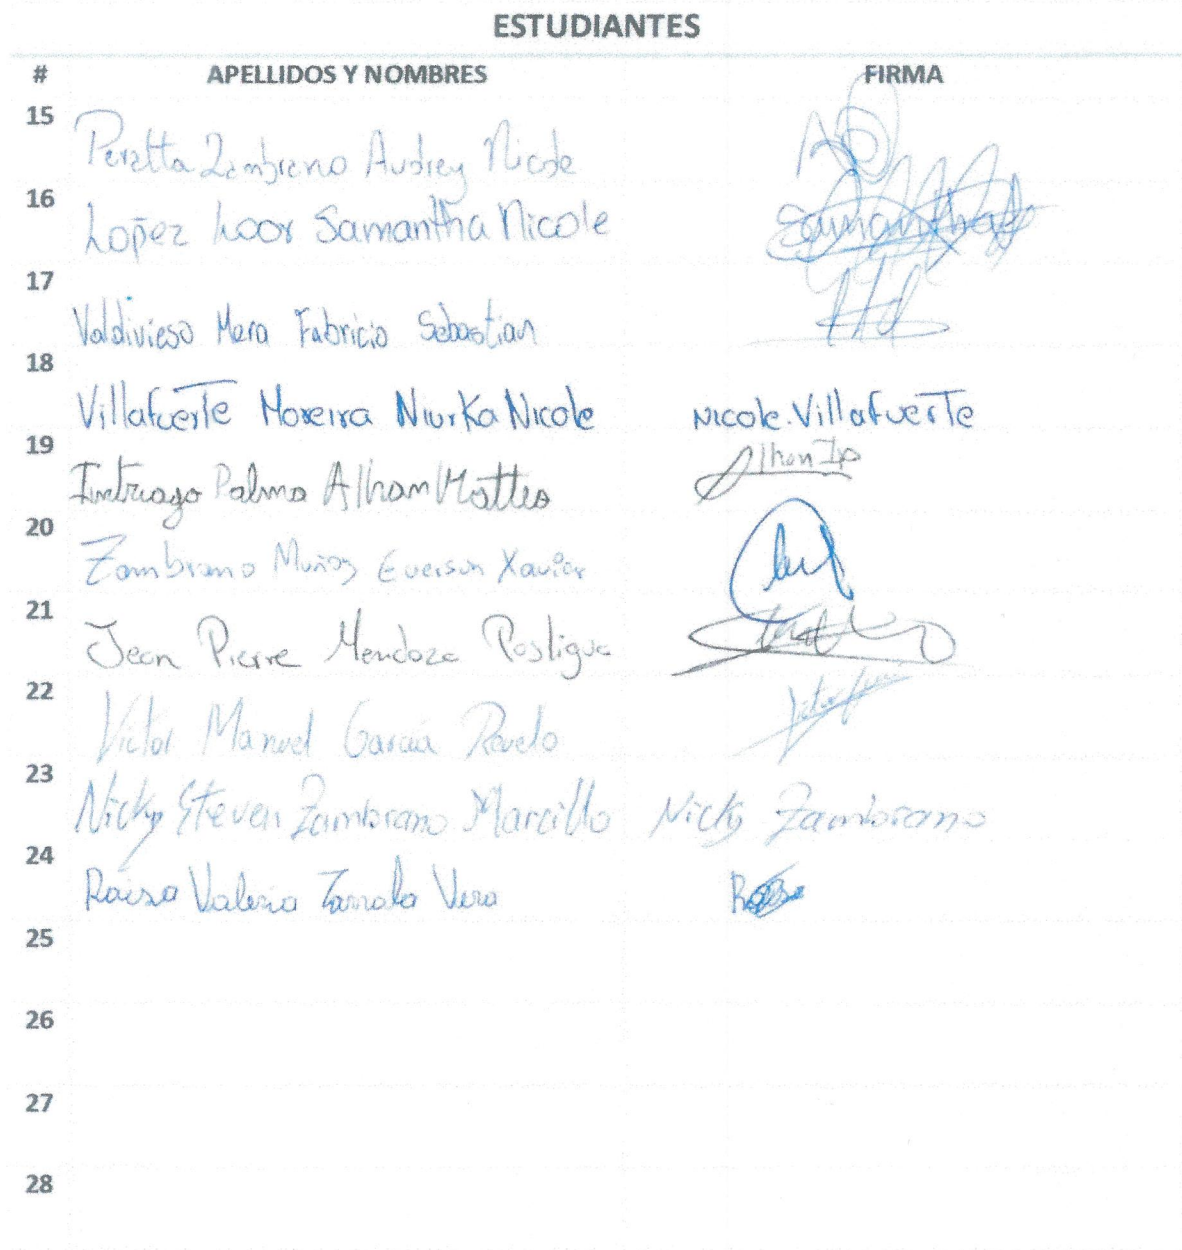 ESTUDIANTES
# APELLIDOS Y NOMBRES FIRMA
15 Peralta Zambrano Audrey Nicole
16 Lopez Loor Samantha Nicole Samantha
17 Valdivieso Mera Fabricio Sebastian
18 Villafuerte Moreira Niurka Nicole Nicole.Villafuerte
19 Intriago Palma Alhan Matteo Alhan
20 Zambrano Muñoz Everson Xavier
21 Jean Pierre Mendoza Posligua
22 Victor Manuel García Revelo
23 Nicky Steven Zambrano Marcillo Nicky Zambrano
24 Raisa Valeria Vera
25
26
27
28